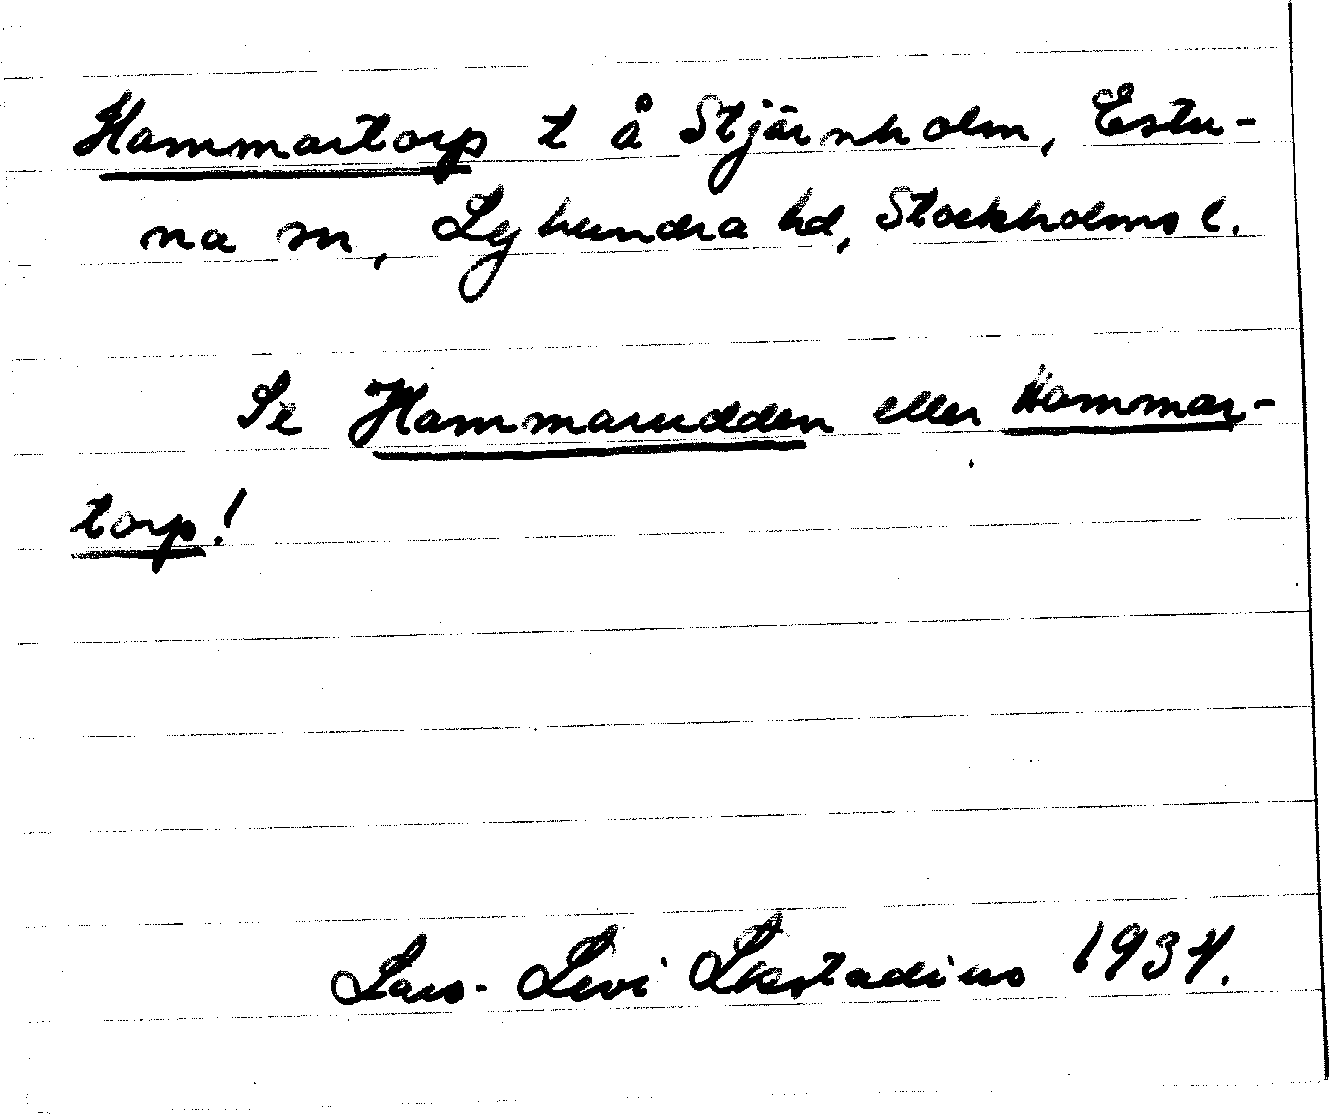 Hammartorp t å Stjärnholm, Estu-
na sn, Lyhundra hd, Stockholms l.
Se Hammarudden eller Hammar-
torp!
Lars-Levi Læstadius 1934.